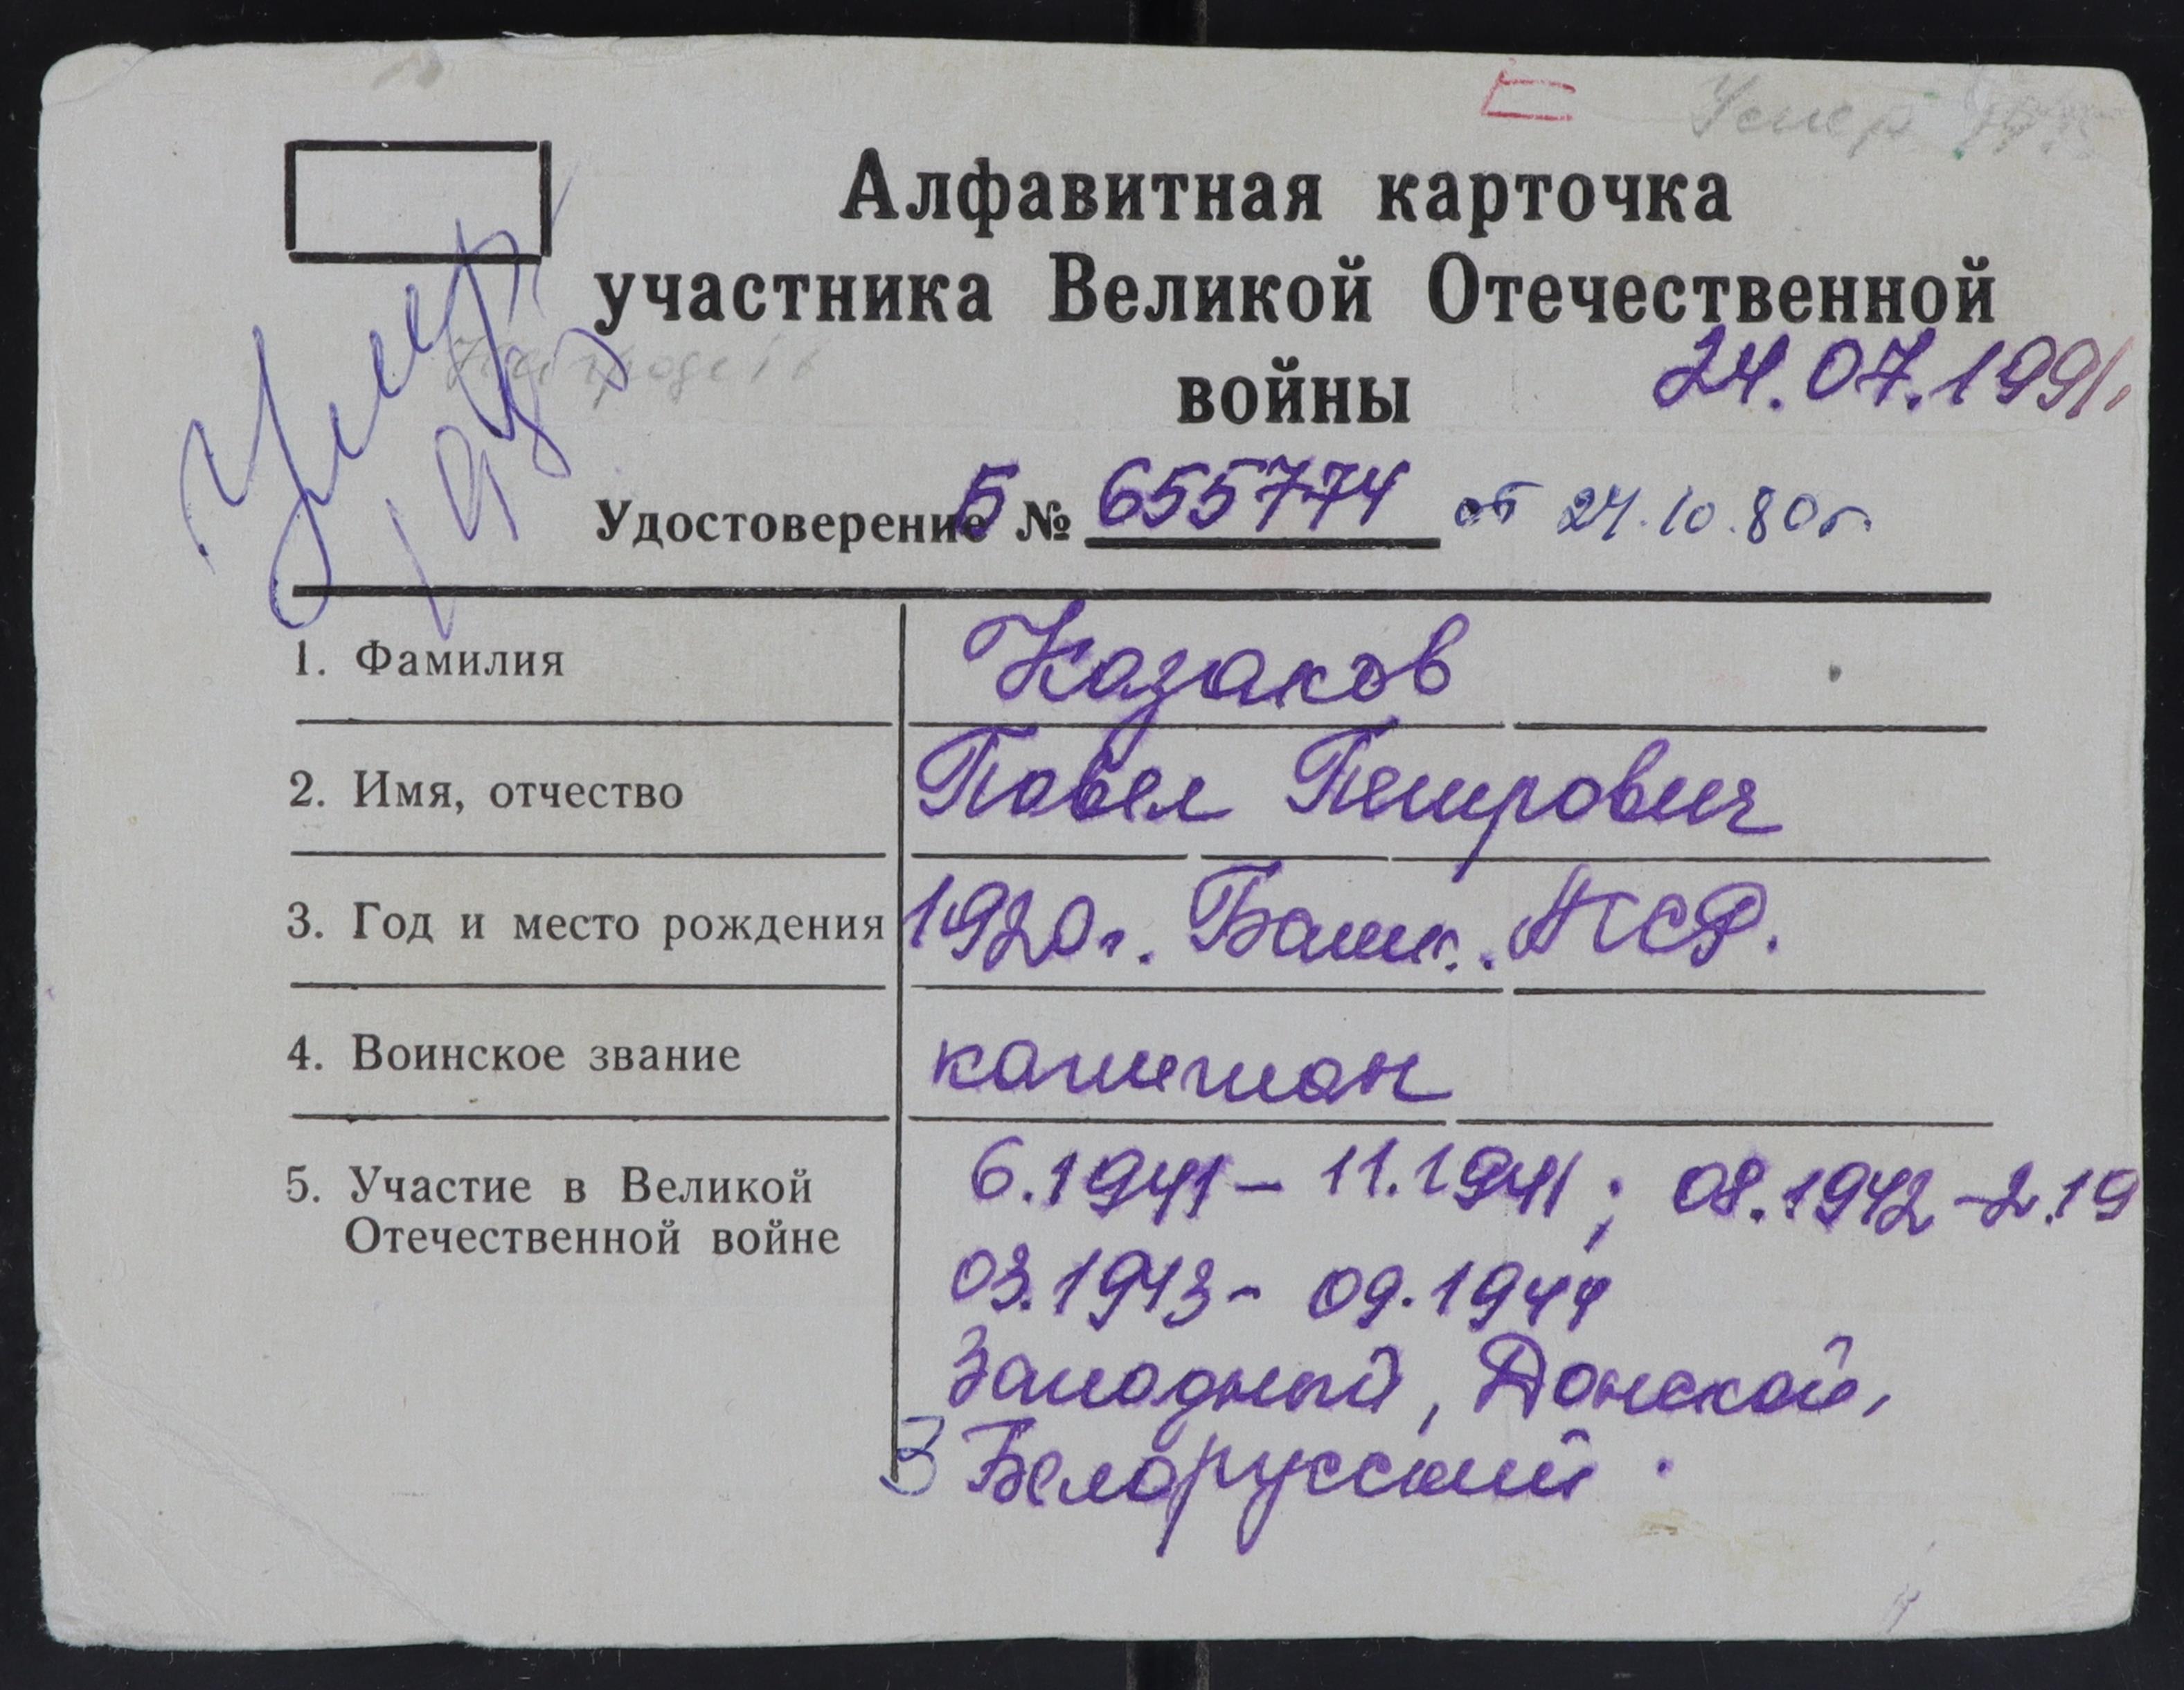 Умер
Алфавитная карточка
участника Великой Отечественной
войны
24.07.1991.
Умер
Удостоверение Б № 655774 от 24.10.80г.
1. Фамилия Казаков
2. Имя, отчество Павел Петрович
3. Год и место рождения 1920г. Башк. АССР.
4. Воинское звание капитан
5. Участие в Великой 6.1941 – 11.1941; 08.1942 – 2.19
Отечественной войне
03.1943 - 09.1944
Западный, Донской,
3 Белорусский.